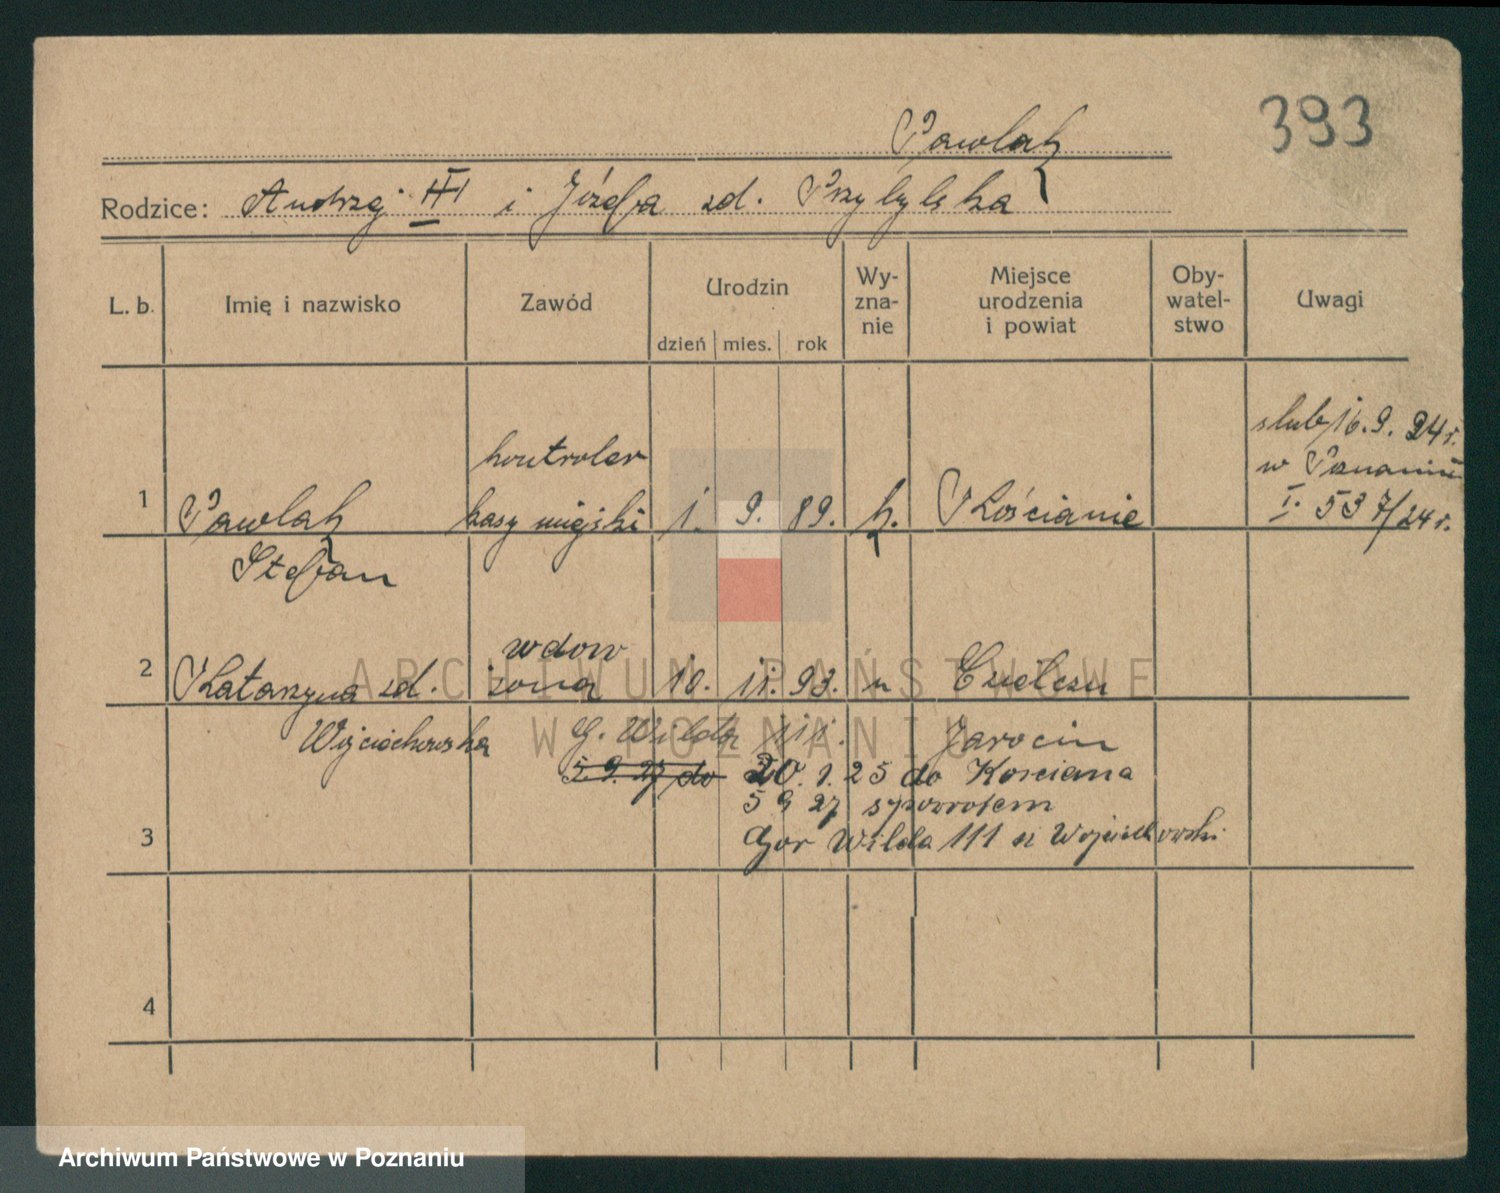 393
Pawlak
Rodzice: Andrzej III i Józefa zd. Przybylska
L. b. Imię i nazwisko Zawód Urodzin Wy- zna- nie Miejsce urodzenia i powiat Oby- watel- stwo Uwagi
dzień mies. rok
ślub 16.9. 24 r.
w Poznaniu
I. 537/24 r.
kontroler
1 Pawlak kasy miejski 1. 9. 89. k. Kościanie
Stefan
wdow
2 Katarzyna zd. żona 10. 11. 93. "
Wojciechowska G. Wilda 111. Jarocin
5 9. 27 do 20. 1. 25 do Kościana
5 9 27 spowrotem
3 Gor Wilda 111 Wojciechowski
4
ARCHIWUM PAŃSTWOWE
W POZNANIU
Archiwum Państwowe w Poznaniu